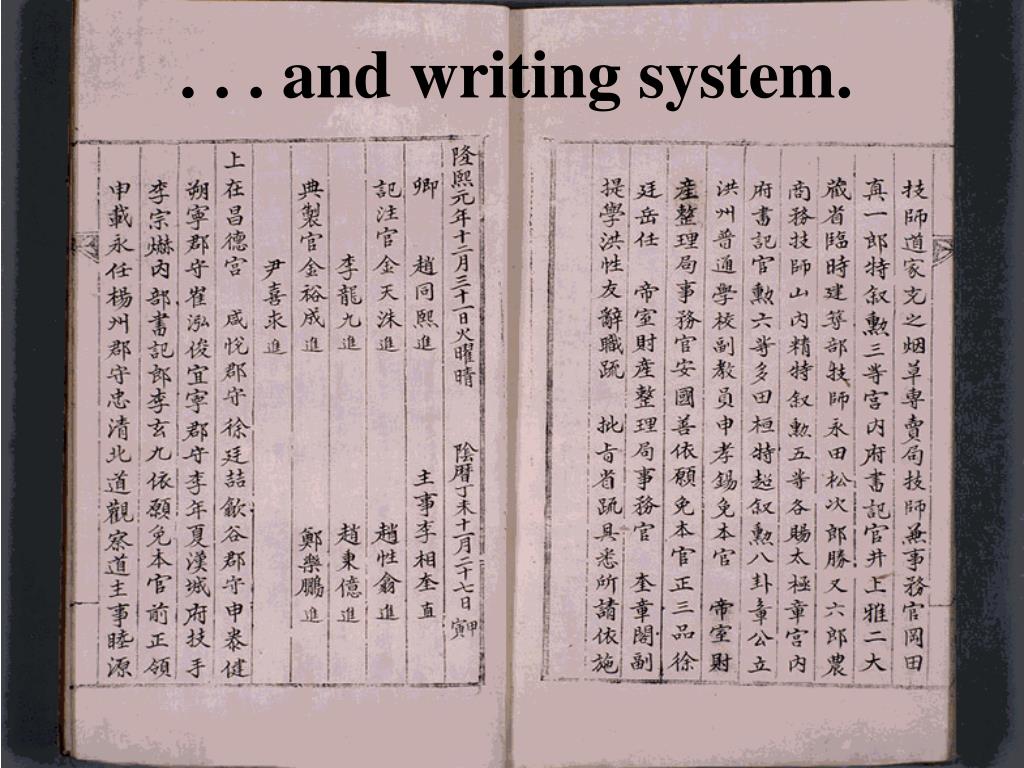 . . . and writing system.
技師道家充之烟草專賣局技師兼事務官岡田
眞一郎特叙勲三等宮內府書記官井上雅二大
藏省臨時建築部技師永田松次郎勝又六郎農
商務技師山內精特叙勲五等各賜太極章宮內
府書記官勲六等多田桓特超叙勲八卦章公立
洪州普通學校副教員申孝錫免本官 帝室財
產整理局事務官安國善依願免本官正三品徐
廷岳任 帝室財產整理局事務官 奎章閣副
提學洪性友辭職疏 批旨省疏具悉所請依施
隆熙元年十二月三十一日火曜晴 陰曆丁未十一月二十七日甲寅
卿 趙同熙進 主事李相奎直
記注官金天洙進 趙性翕進
李龍九進 趙東億進
典製官金裕成進 鄭樂鵬進
尹喜求進
上在昌德宮 咸悅郡守徐廷喆歙谷郡守申泰健
朔寧郡守崔泓俊宜寧郡守李年夏漢城府技手
李宗爀內部書記郎李玄九依願免本官前正領
申載永任楊州郡守忠清北道觀察道主事睦源